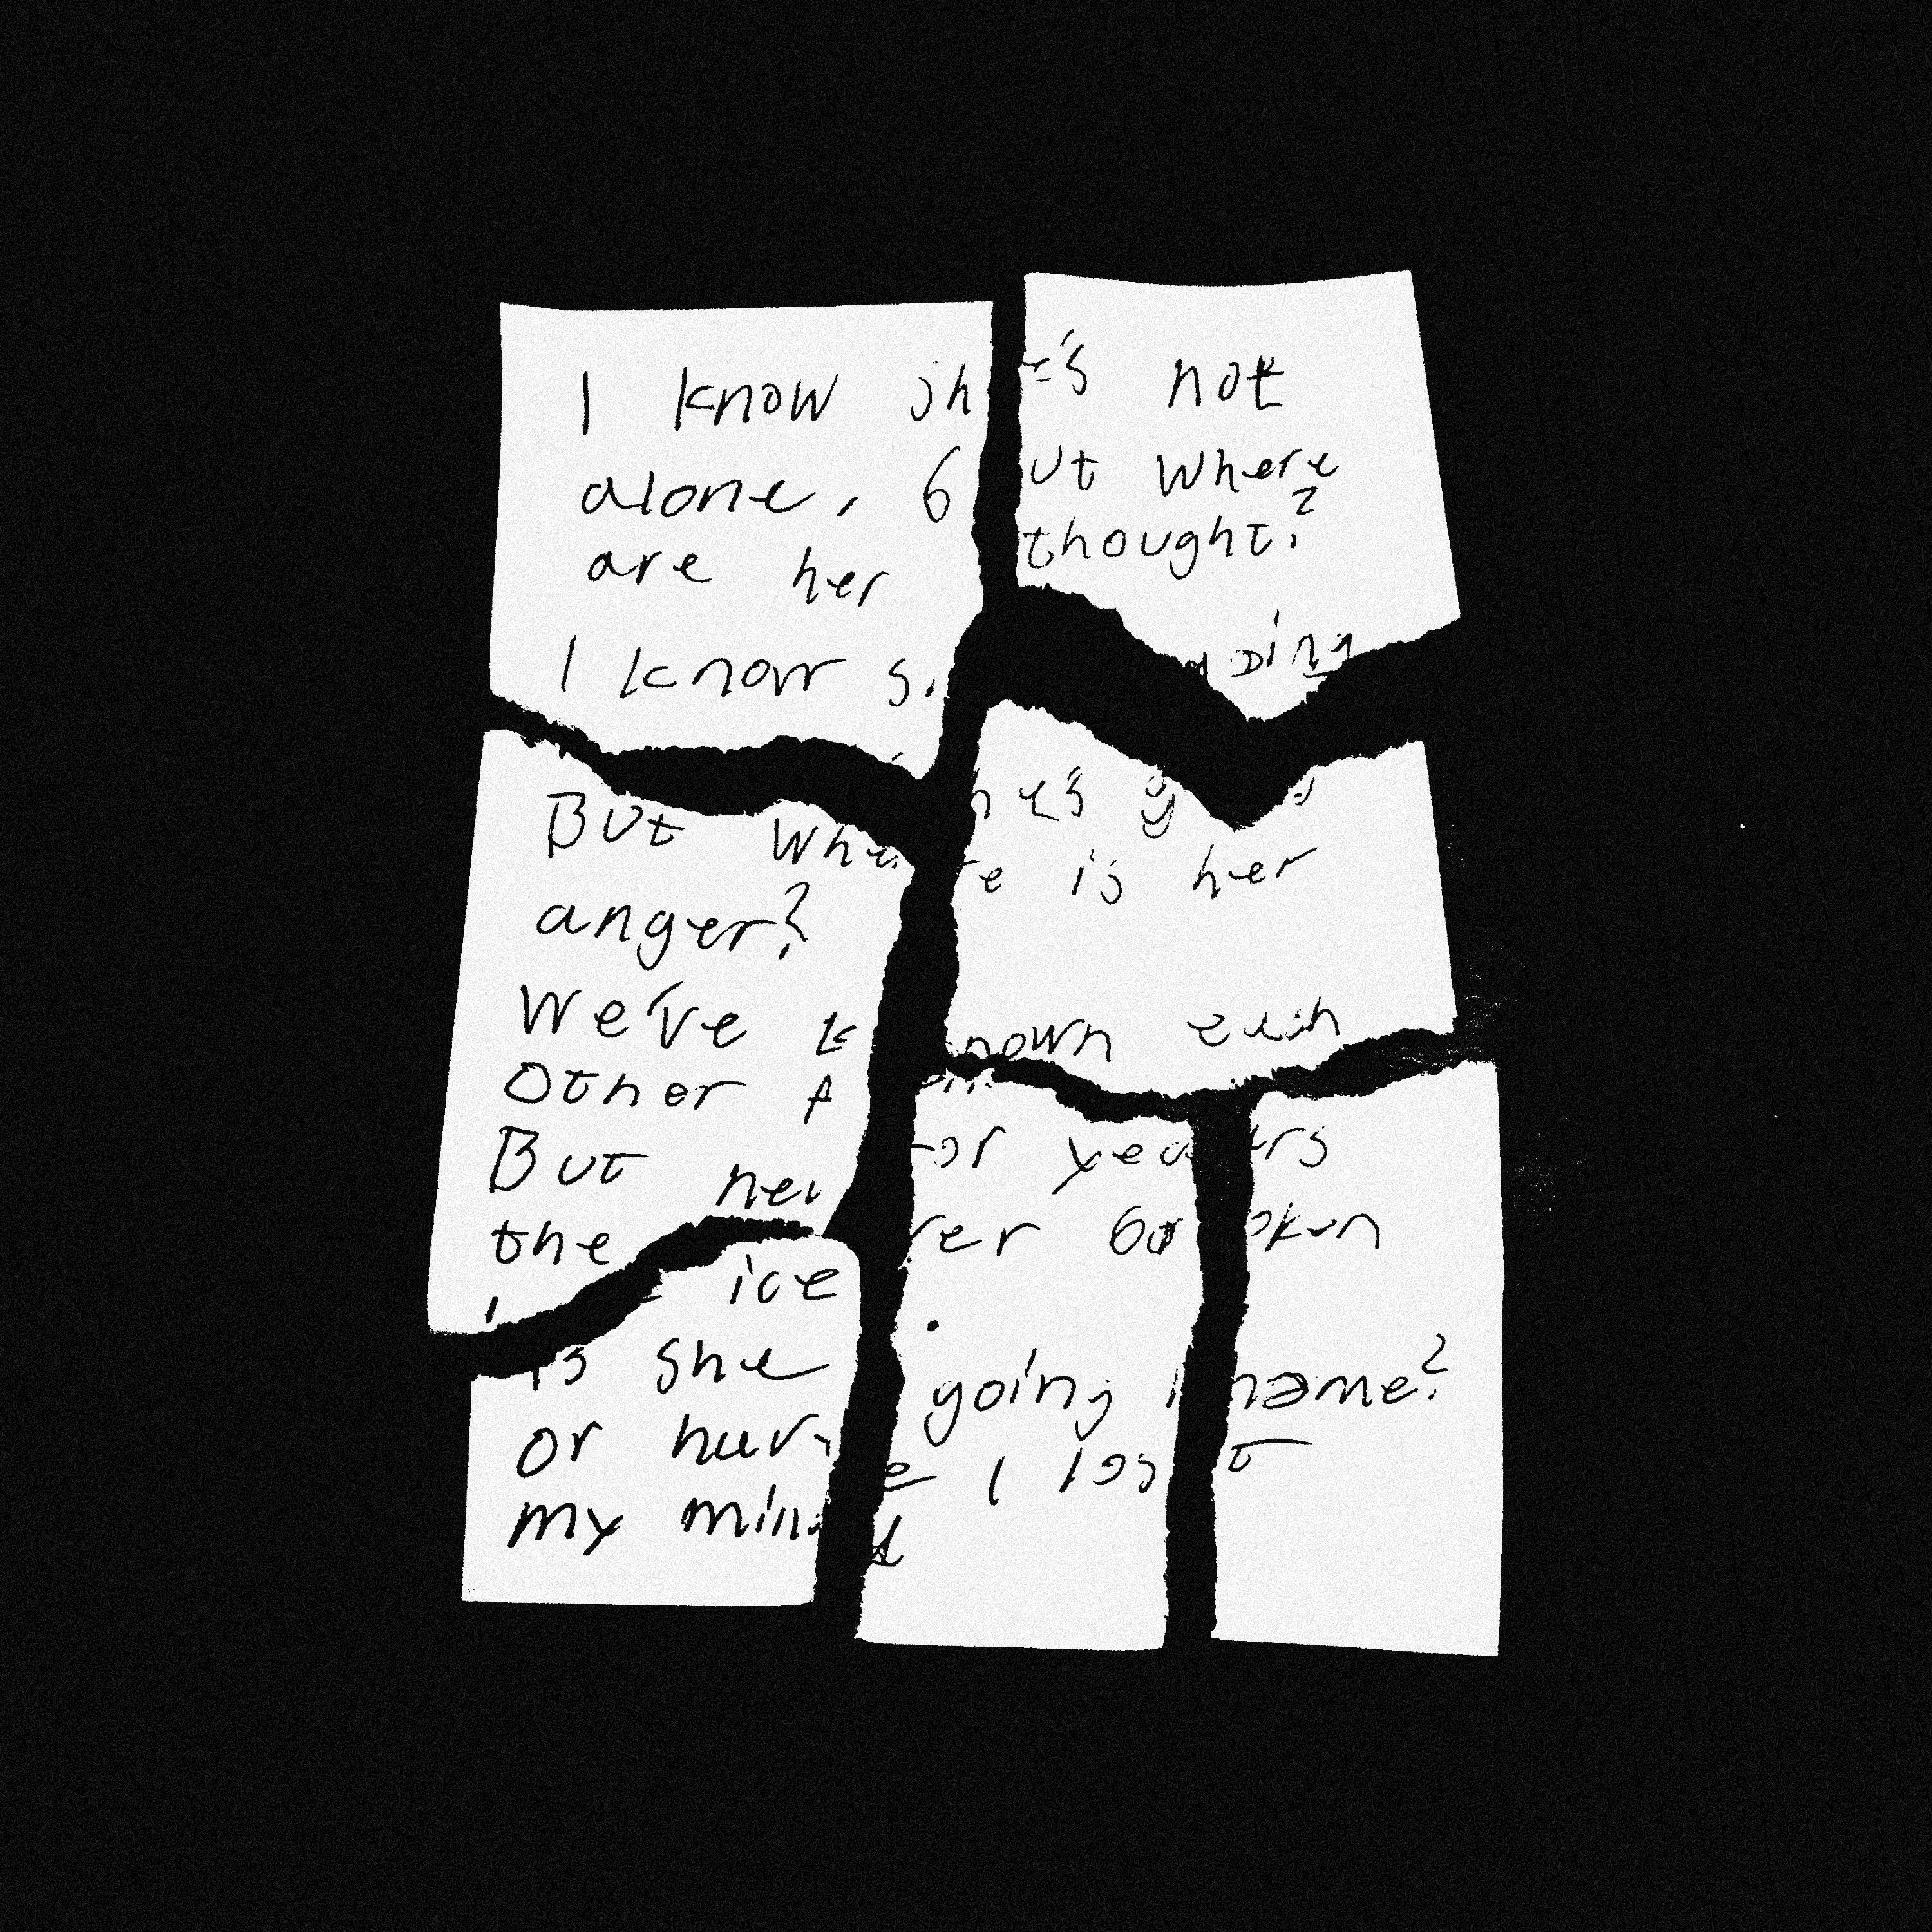 I know she's not
alone, but where
are her thought?
I know she's
But where is her
anger?
We've known each
other for years
But never broken
the ice.
Is she going home?
or have I lost
my mind